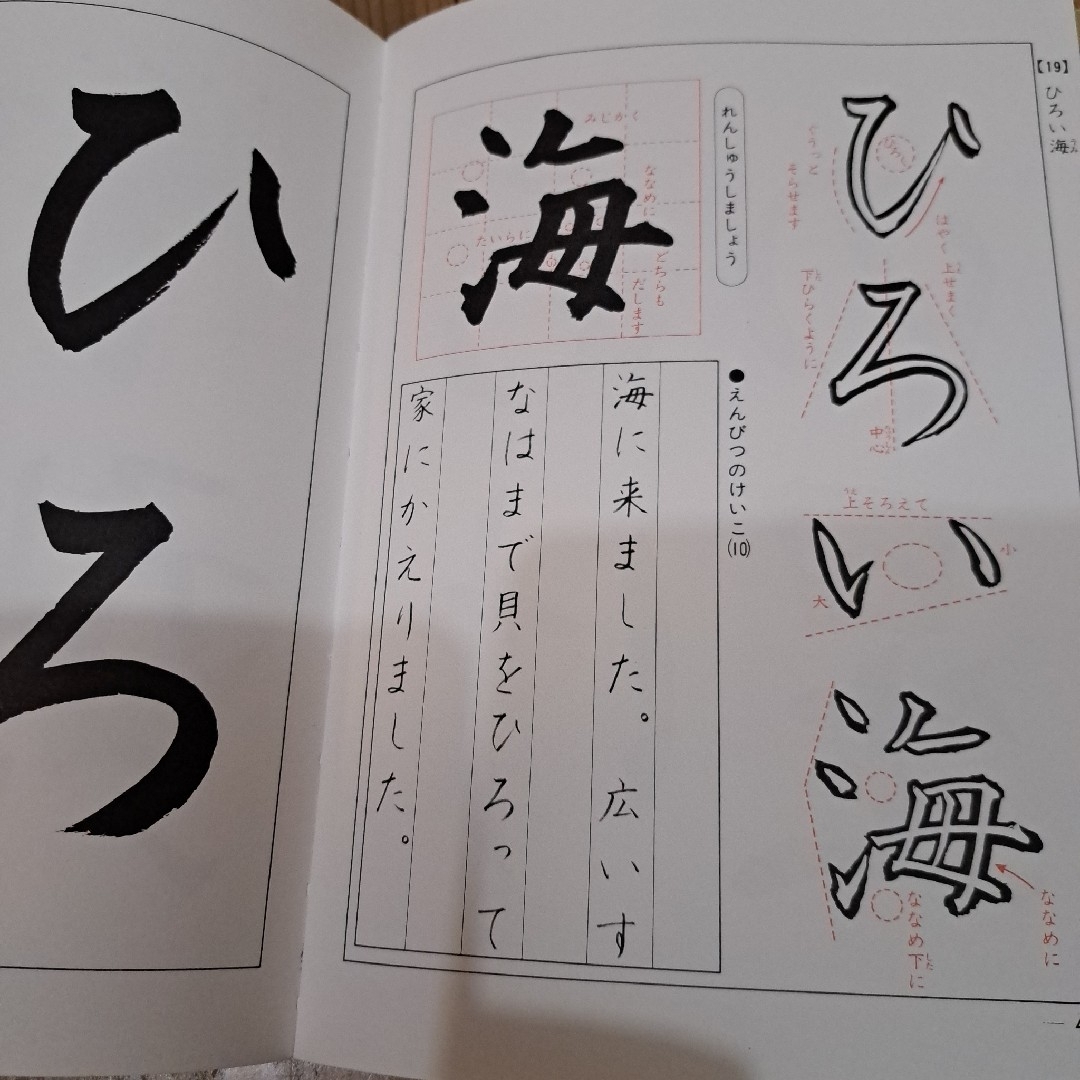 【19】ひろい海
うみ
ひろい海
ひろく
ぐうっと
そらせます
はやく
上せまく
下ひらくように
した
中心
上そろえて
うえ
小
大
ななめに
ななめ下に
した
れんしゅうしましょう
海
みじかく
ななめに
たいらに
どちらも
だします
●えんぴつのけいこ(10)
海に来ました。広いす
なはまで貝をひろって
家にかえりました。
ひろ